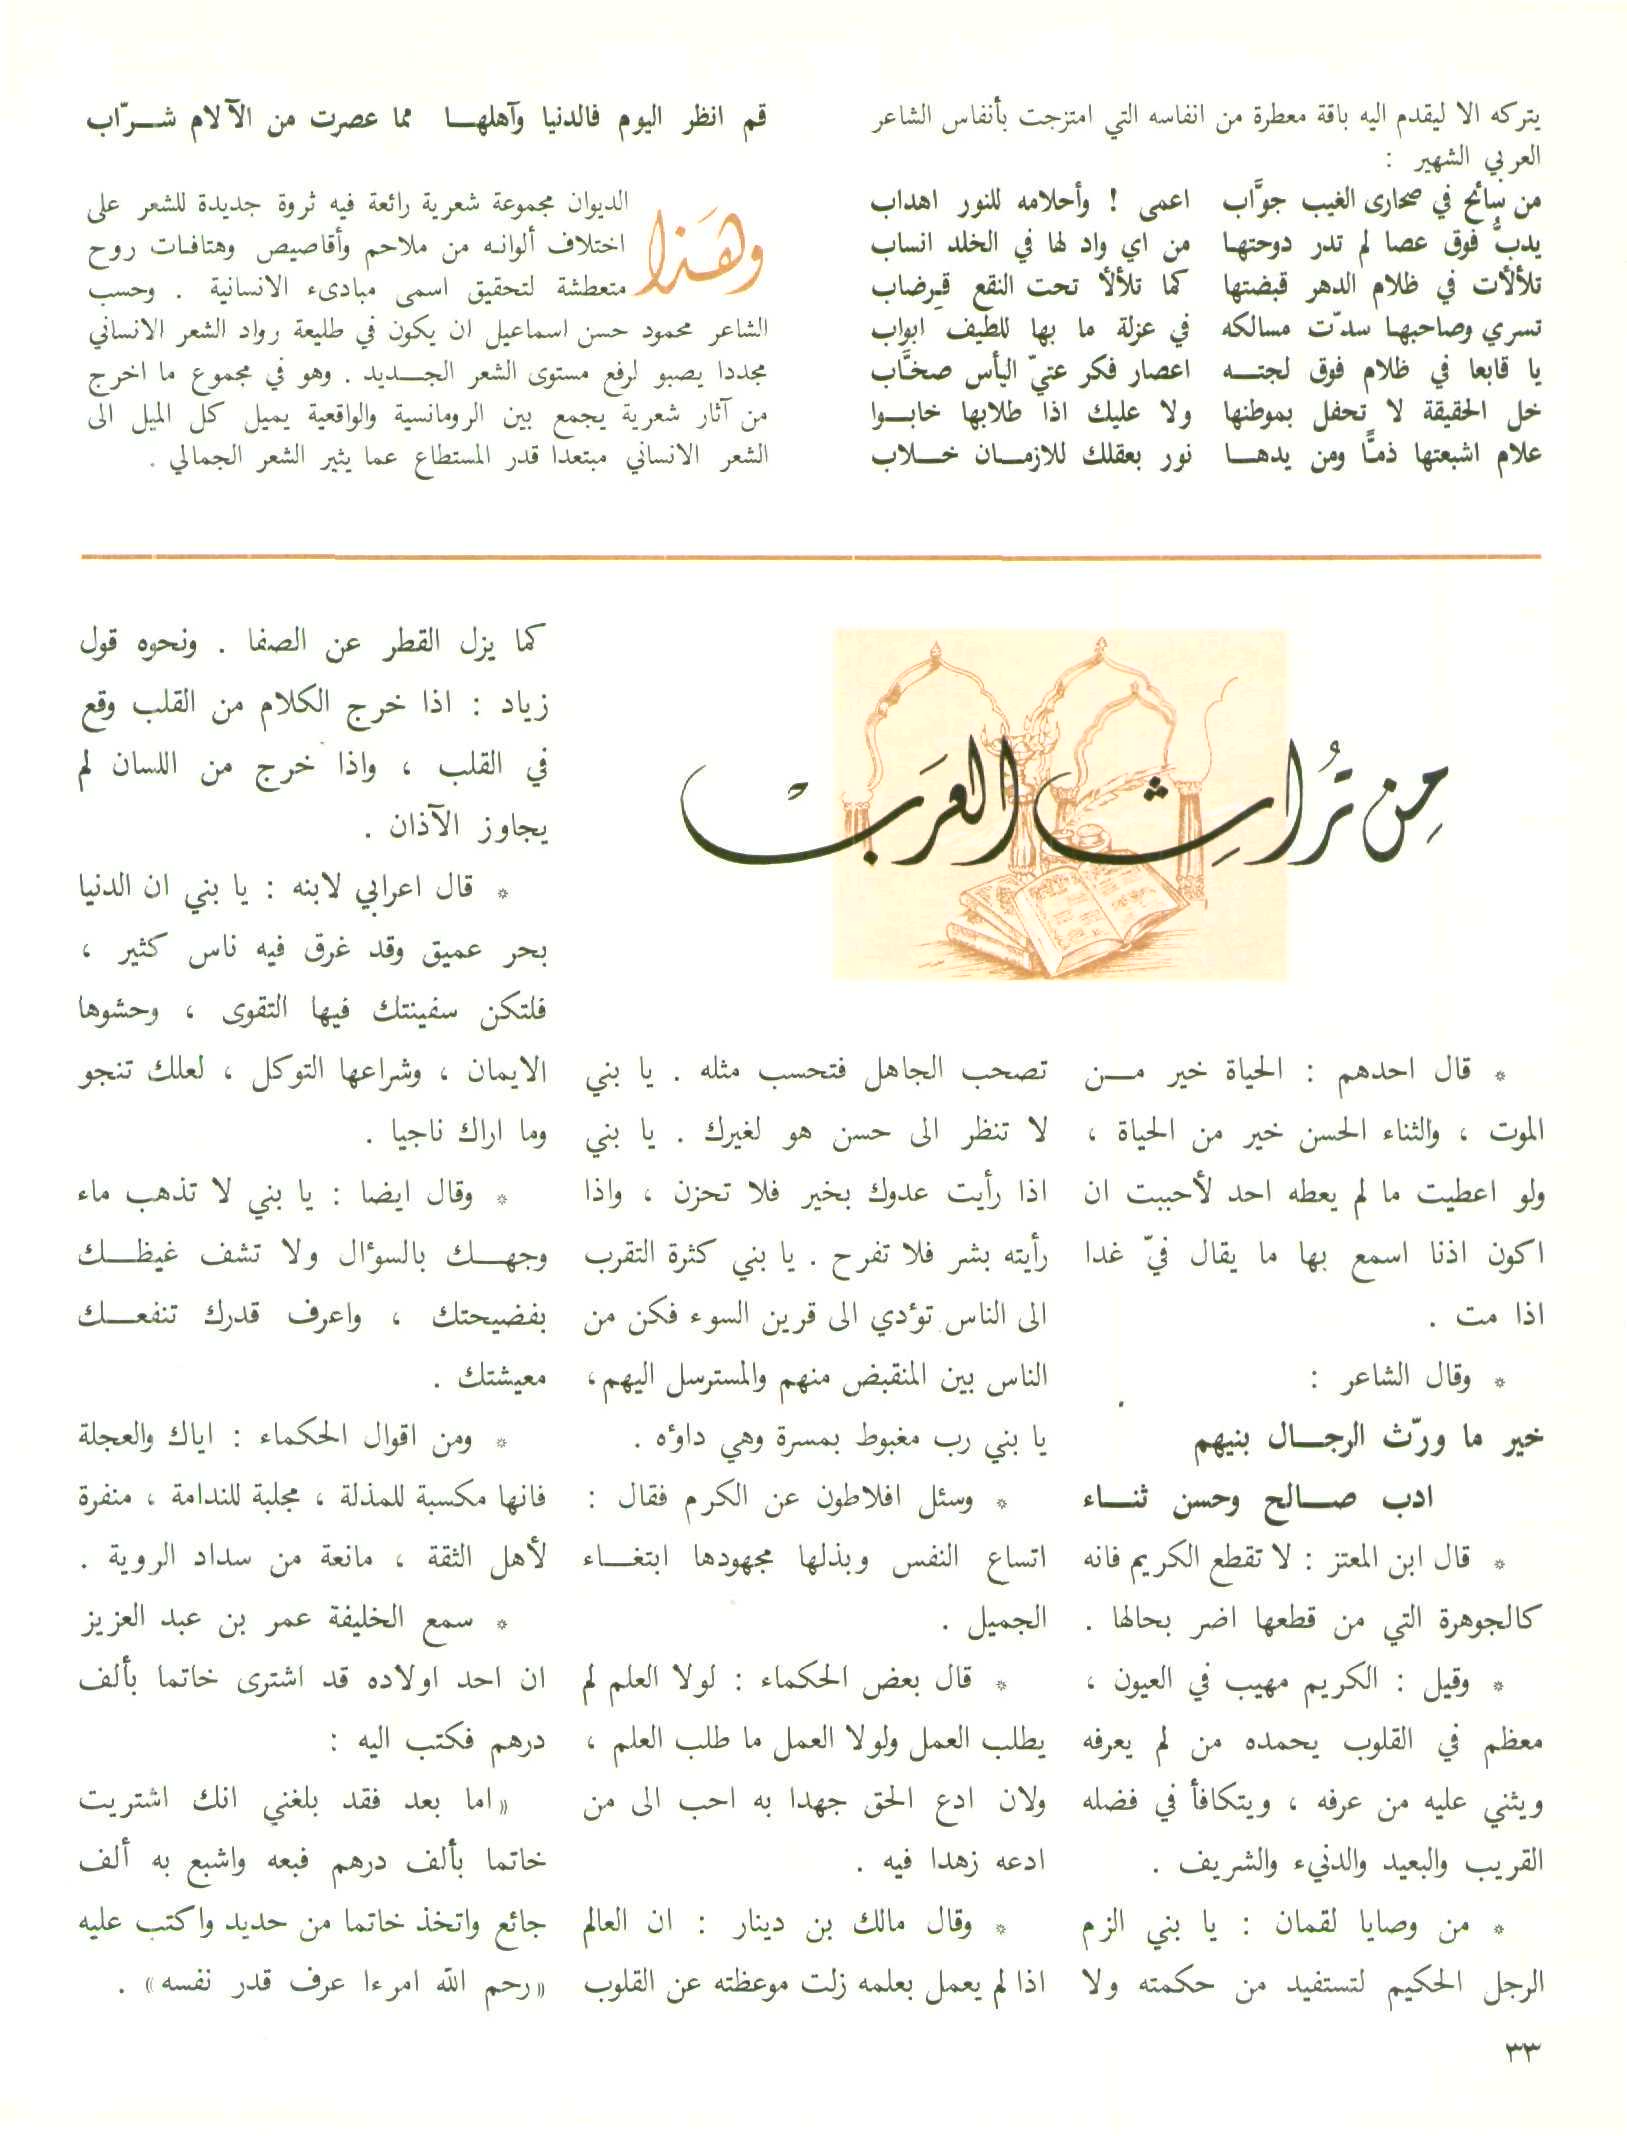 يتركه الا ليقدم اليه باقة معطرة من انفاسه التي امتزجت بأنفاس الشاعر
العربي الشهير :
من سائح في صحارى الغيب جوَّاب اعمى ! وأحلامه للنور اهداب
يدبُّ فوق عصا لم تدر دوحتها من اي واد لها في الخلد انساب
تلألأت في ظلام الدهر قبضتها كما تلألأ تحت النقع قرضاب
تسري وصاحبها سدّت مسالكه في عزلة ما بها للطيف ابواب
يا قابعا في ظلام فوق لجتـــه اعصار فكر عتيّ اليأس صخَّاب
خل الحقيقة لا تحفل بموطنها ولا عليك اذا طلابها خابــوا
علام اشبعتها ذمًّا ومن يدهــا نور بعقلك للازمــان خـــلاب
قم انظر اليوم فالدنيا وآهلهــا مما عصرت من الآلام شـــرّاب
وهَذا الديوان مجموعة شعرية رائعة فيه ثروة جديدة للشعر على
اختلاف ألوانه من ملاحم وأقاصيص وهتافات روح
متعطشة لتحقيق اسمى مبادىء الانسانية . وحسب
الشاعر محمود حسن اسماعيل ان يكون في طليعة رواد الشعر الانساني
مجددا يصبو لرفع مستوى الشعر الجــديد . وهو في مجموع ما اخرج
من آثار شعرية يجمع بين الرومانسية والواقعية يميل كل الميل الى
الشعر الانساني مبتعدا قدر المستطاع عما يثير الشعر الجمالي .
مِن تُراثِ العَرَب
* قال احدهم : الحياة خير مــن
الموت ، والثناء الحسن خير من الحياة ،
ولو اعطيت ما لم يعطه احد لأحببت ان
اكون اذنا اسمع بها ما يقال فيّ غدا
اذا مت .
* وقال الشاعر :
خير ما ورّث الرجــال بنيهم
ادب صــالح وحسن ثنــاء
* قال ابن المعتز : لا تقطع الكريم فانه
كالجوهرة التي من قطعها اضر بحالها .
* وقيل : الكريم مهيب في العيون ،
معظم في القلوب يحمده من لم يعرفه
ويثني عليه من عرفه ، ويتكافأ في فضله
القريب والبعيد والدنيء والشريف .
* من وصايا لقمان : يا بني الزم
الرجل الحكيم لتستفيد من حكمته ولا
تصحب الجاهل فتحسب مثله . يا بني
لا تنظر الى حسن هو لغيرك . يا بني
اذا رأيت عدوك بخير فلا تحزن ، واذا
رأيته بشر فلا تفرح . يا بني كثرة التقرب
الى الناس تؤدي الى قرين السوء فكن من
الناس بين المنقبض منهم والمسترسل اليهم،
يا بني رب مغبوط بمسرة وهي داؤه .
* وسئل افلاطون عن الكرم فقال :
اتساع النفس وبذلها مجهودها ابتغــاء
الجميل .
* قال بعض الحكماء : لولا العلم لم
يطلب العمل ولولا العمل ما طلب العلم ،
ولان ادع الحق جهدا به احب الى من
ادعه زهدا فيه .
* وقال مالك بن دينار : ان العالم
اذا لم يعمل بعلمه زلت موعظته عن القلوب
كما يزل القطر عن الصفا . ونحوه قول
زياد : اذا خرج الكلام من القلب وقع
في القلب ، واذا خرج من اللسان لم
يجاوز الآذان .
* قال اعرابي لابنه : يا بني ان الدنيا
بحر عميق وقد غرق فيه ناس كثير ،
فلتكن سفينتك فيها التقوى ، وحشوها
الايمان ، وشراعها التوكل ، لعلك تنجو
وما اراك ناجيا .
* وقال ايضا : يا بني لا تذهب ماء
وجهــك بالسؤال ولا تشف غيظــك
بفضيحتك ، واعرف قدرك تنفعــك
معيشتك .
* ومن اقوال الحكماء : اياك والعجلة
فانها مكسبة للمذلة ، مجلبة للندامة ، منفرة
لأهل الثقة ، مانعة من سداد الروية .
* سمع الخليفة عمر بن عبد العزيز
ان احد اولاده قد اشترى خاتما بألف
درهم فكتب اليه :
«اما بعد فقد بلغني انك اشتريت
خاتما بألف درهم فبعه واشبع به ألف
جائع واتخذ خاتما من حديد واكتب عليه
«رحم الله امرءا عرف قدر نفسه» .
٣٣